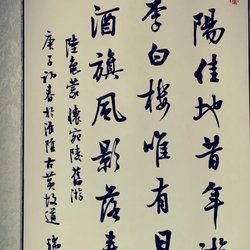 陽佳地昔年游
李白樓唯有日
酒旗風影落春
陸龜蒙懷宛陵舊游
庚子初春於淮陰古黃河道